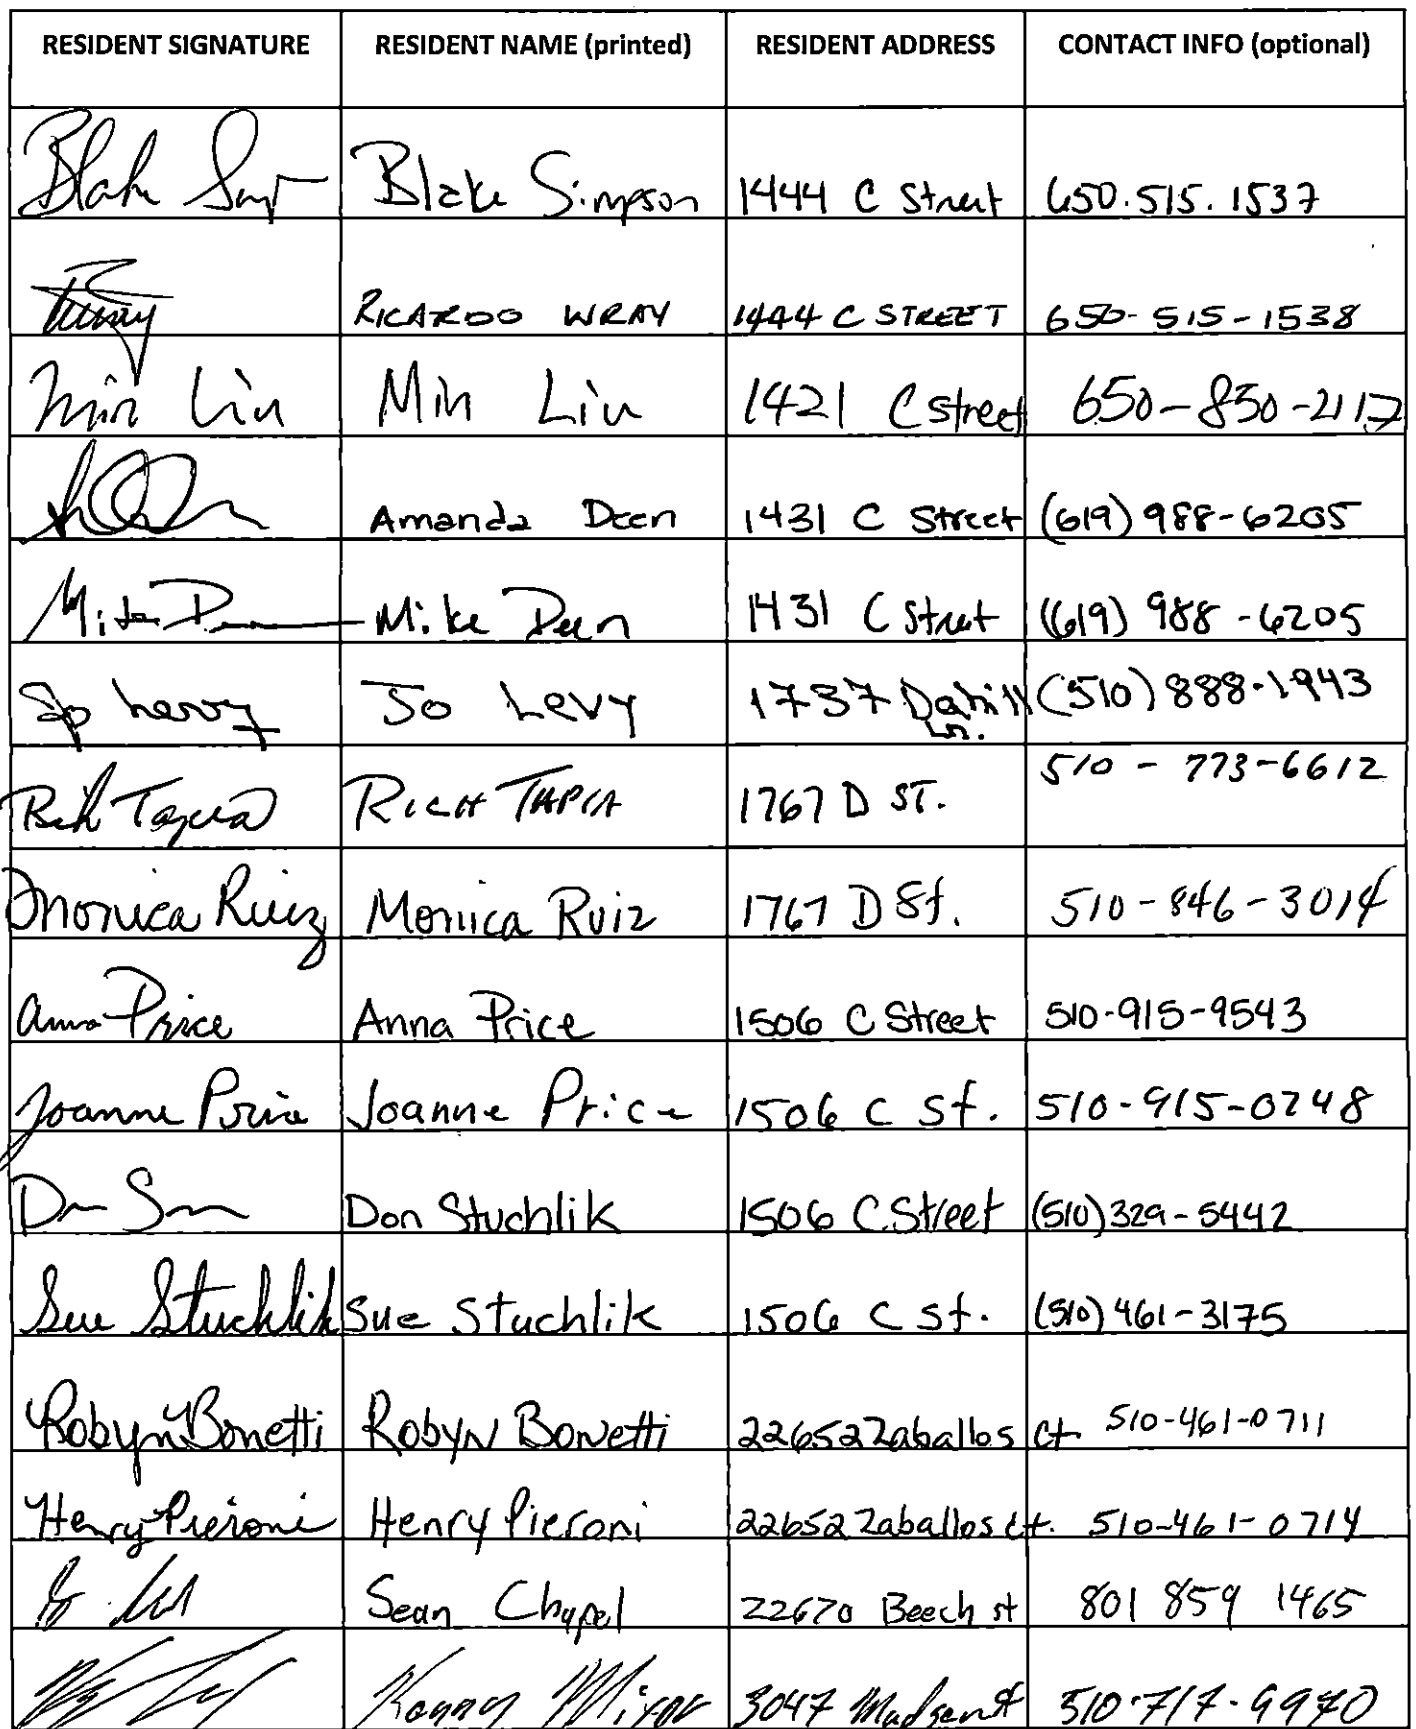 RESIDENT SIGNATURE RESIDENT NAME (printed) RESIDENT ADDRESS CONTACT INFO (optional)
Blake Blake Simpson 1444 C Street 650.515.1537
RICARDO WRAY 1444 C STREET 650-515-1538
Min Liu Min Liu 1421 C Street 650-830-2117
Amanda Deen 1431 C Street (619) 988-6205
Mike Deen 1431 C Street (619) 988-6205
Jo Levy Jo Levy 1737 Dahill Ln. (510) 888-1943
Rich Tapia RICH TAPIA 1767 D ST. 510-773-6612
Monica Ruiz Monica Ruiz 1767 D St. 510-846-3014
Anna Price Anna Price 1506 C Street 510-915-9543
Joanne Price Joanne Price 1506 C St. 510-915-0248
Don Stuchlik 1506 C Street (510) 329-5442
Sue Stuchlik Sue Stuchlik 1506 C St. (510) 461-3175
Robyn Bonetti Robyn Bonetti 22652 Zaballos Ct 510-461-0711
Henry Pieroni Henry Pieroni 22652 Zaballos Ct. 510-461-0714
Sean Chapel 22670 Beech st 801 859 1465
3047 510-717-9970